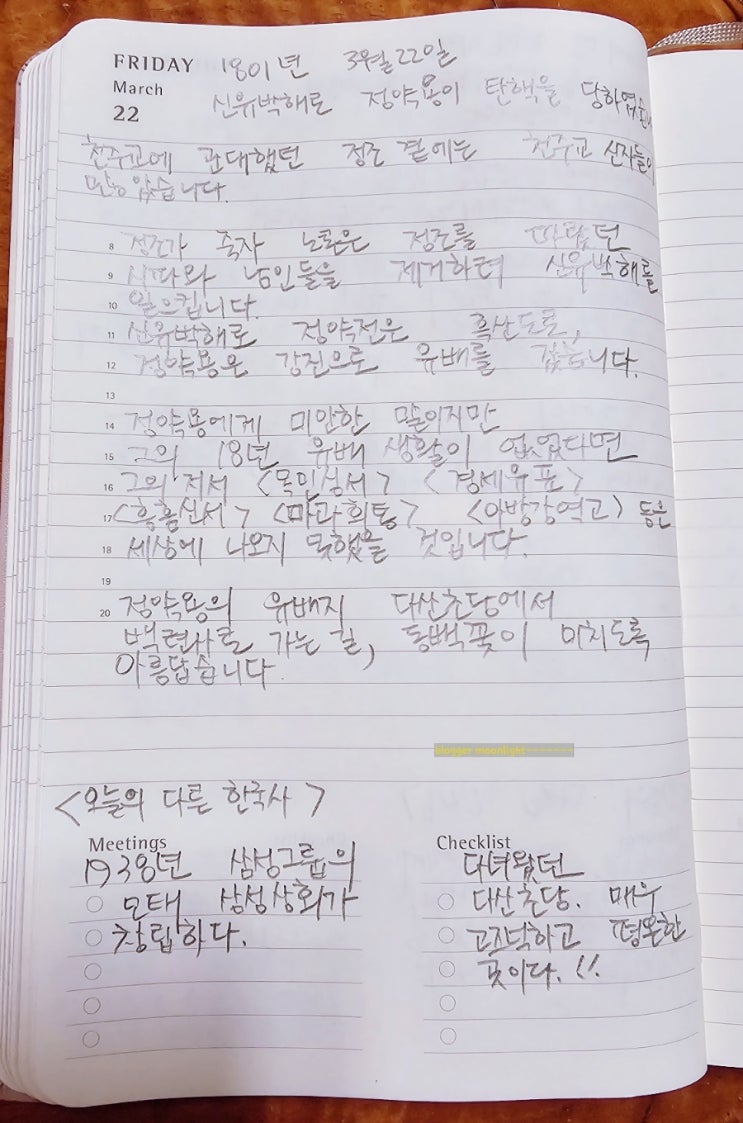 FRIDAY 1801년 3월22일
March
22 신유박해로 정약용이 탄핵을 당하였습니
천주교에 관대했던 정조 곁에는 천주교 신자들이
많았습니다.
8 정조가 죽자 노론은 정조를 따랐던
9 시파와 남인들을 제거하려 신유박해를
10 일으킵니다.
11 신유박해로 정약전은 흑산도로,
12 정약용은 강진으로 유배를 갔습니다.
13
14 정약용에게 미안한 말이지만
15 그의 18년 유배 생활이 없었다면
16 그의 저서 <목민심서> <경세유표>
17 <흠흠신서> <마과회통> <아방강역고> 등은
18 세상에 나오지 못했을 것입니다.
19
20 정약용의 유배지 다산초당에서
백련사로 가는 길, 동백꽃이 미치도록
아름답습니다.
blogger moonlight-------
<오늘의 다른 한국사>
Meetings
1938년 삼성그룹의
모태 삼성상회가
창립하다.
Checklist
다녀왔던
다산초당. 매우
고즈넉하고 평온한
곳이다.!!